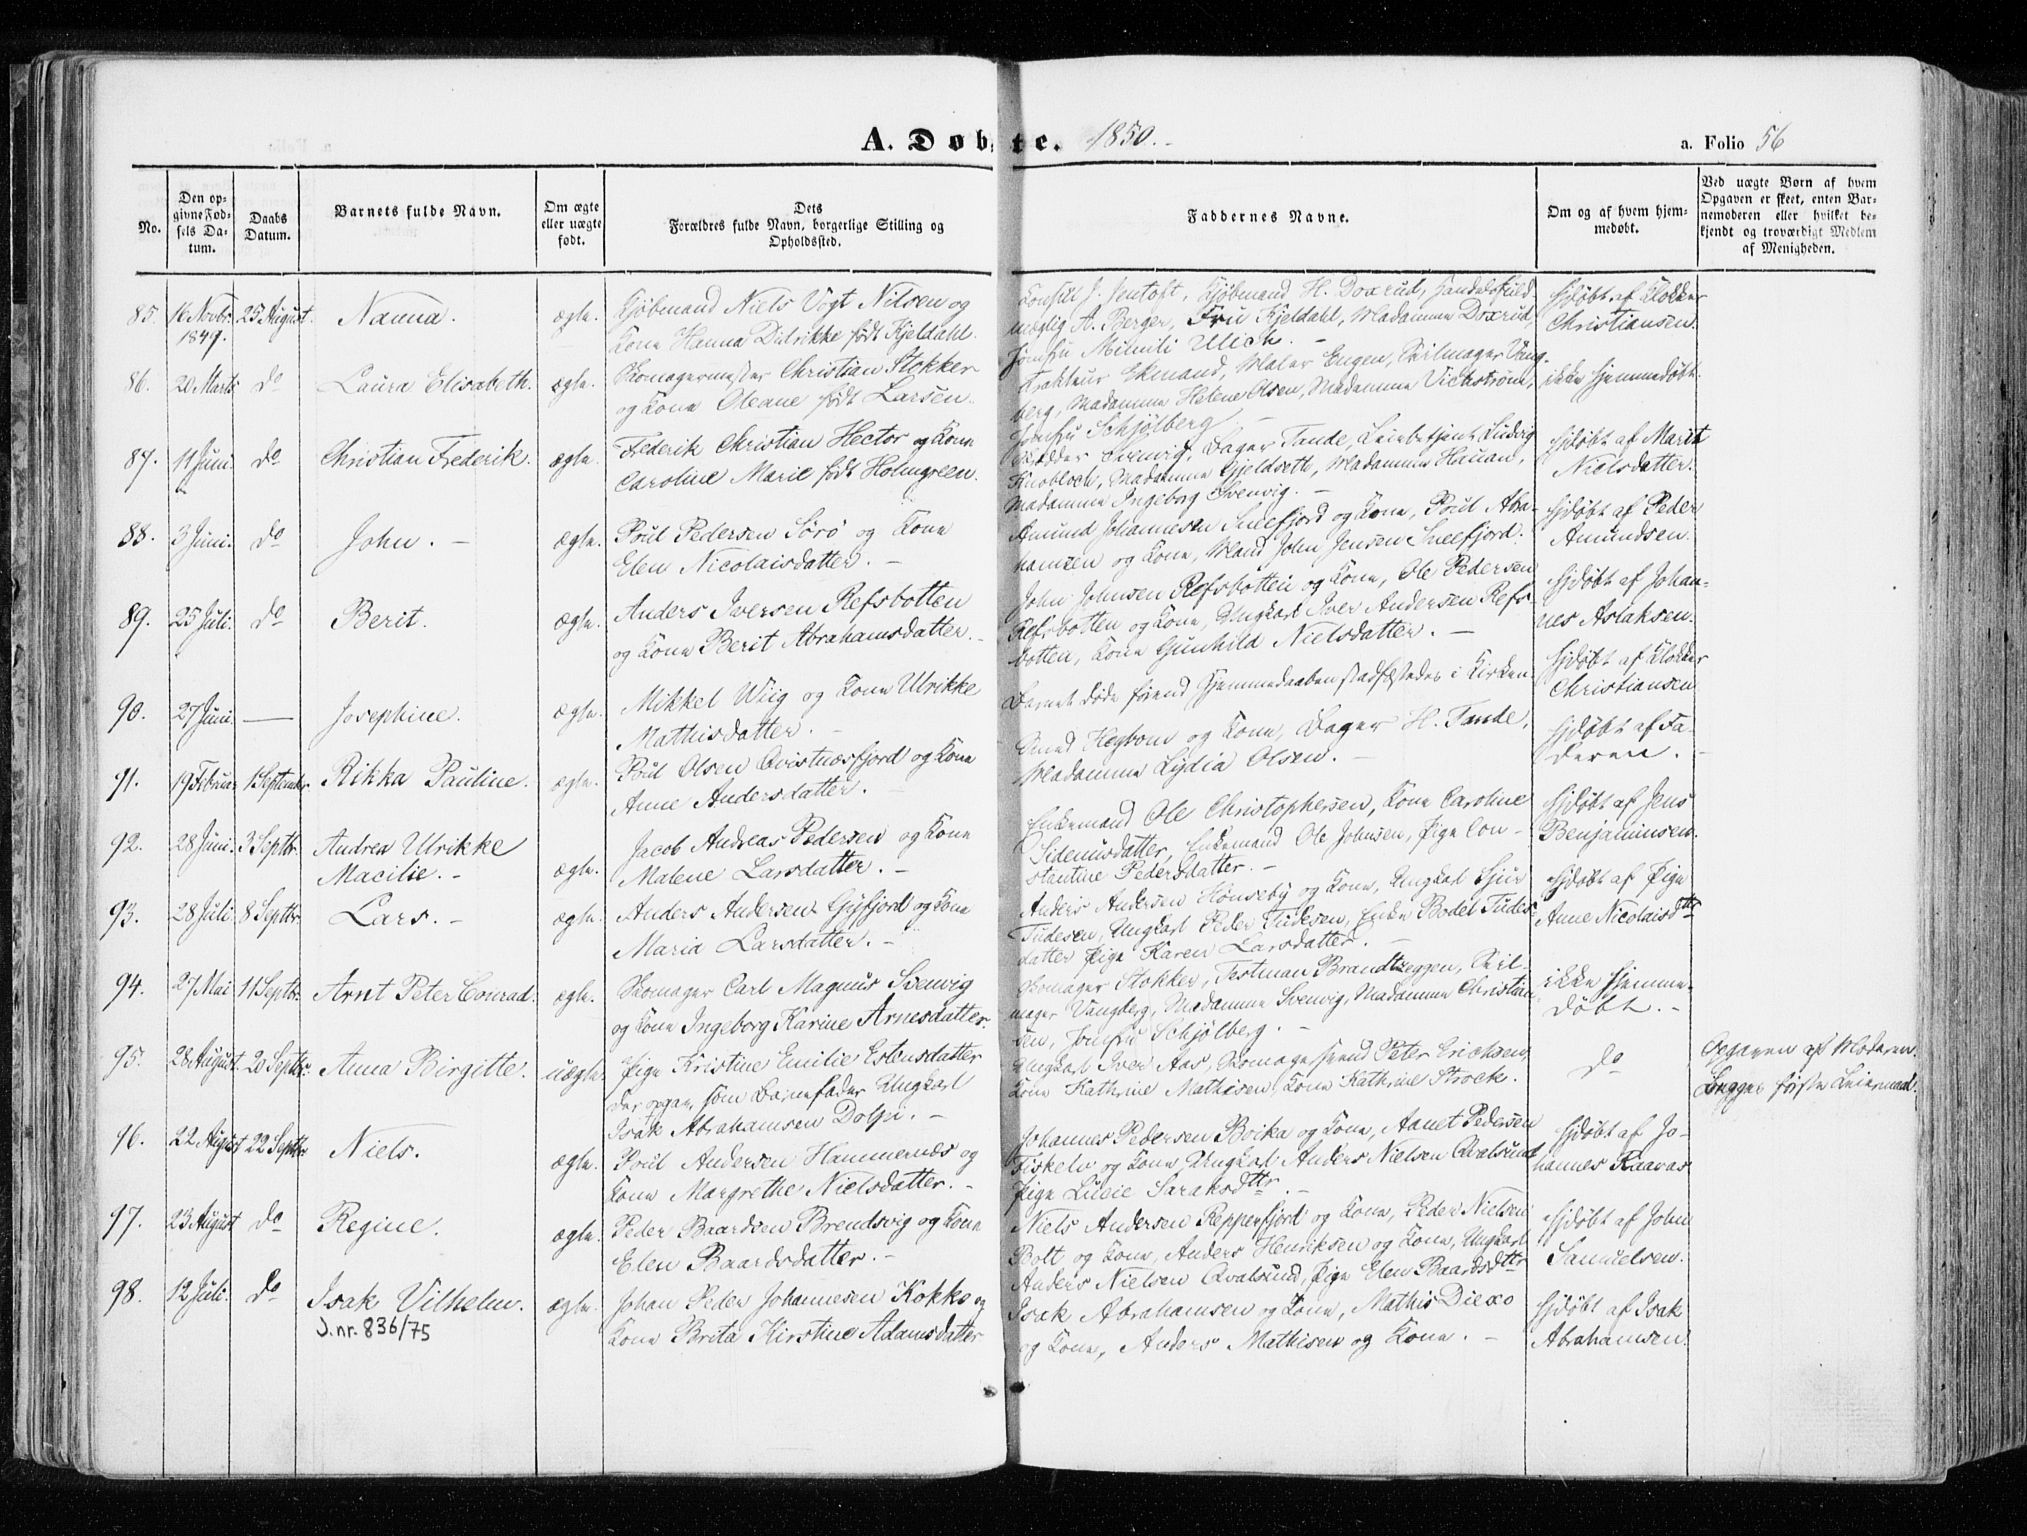 A. Døbte. 1850.
a. Folio 56
No.
Den op-
givne Fød-
sels Da-
tum.
Daabs
Datum.
Barnets fulde Navn.
Om ægte
eller uægte
født.
Dets
Forældres fulde Navn, borgerlige Stilling og
Opholdssted.
Faddernes Navne.
Om og af hvem hjem-
medøbt.
Ved uægte Børn af hvem
Opgaven er skeet, enten Bar-
nemoderen eller hvilket be-
kjendt og troværdigt Medlem
af Menigheden.
85. 16 Novbr. 1849. 25 August. Nanna. ægte.
Kjøbmand Niels Vogt Nilsen og
Kone Hanna Didrikke født Kjeldahl.
Konsul J. Jentoft, Kjøbmand H. Doxrud, Handelsfuld-
mægtig A. Berger, Fru Kjeldahl, Madamme Doxrud,
Jomfru Milniti Ulich. -
Hjdøbt af Klokker
Christiansen.
86. 20 Marts do Laura Elisabeth. ægte.
Skomagermester Christian Stokker
og Kone Oleane født Larsen.
Trakteur Ekmand, Maler Engen, Seilmager Vang-
berg, Madamme Helene Olsen, Madamme Vickstrøm,
Jomfru Schjølberg -
ikke hjemmedøbt.
87. 11 Juni. do Christian Frederik. ægte.
Frederik Christian Hector og Kone
Caroline Marie født Holmgreen.
Svenvig, Bager Tande, Ludvig
Knobloch, Madamme Gjeldseth, Madamme Hauan,
Madamme Ingeborg Svenvig. -
Hjdøbt af Marit
Nielsdatter.
88. 3 Juni. do John. - ægte.
Poul Pedersen Sørø og Kone
Elen Nicolaisdatter. -
Amund Johannesen Sneefjord og Kone, Poul Abra-
hamsen og Kone, Mand John Jensen Sneefjord.
Hjdøbt af Peder
Amundsen.
89. 25 Juli. do Berit. ægte.
Anders Iversen Refsbotten
og Kone Berit Abrahamsdatter. -
John Johnsen Refsbotten og Kone, Ole Pedersen
Refsbotten og Kone, Ungkarl Iver Andersen Refs-
botten, Kone Gunhild Nielsdatter. -
Hjdøbt af Johan-
nes Aslaksen.
90. 27 Juni. - Josephine. ægte.
Mikkel Wiig og Kone Ulrikke
Mathisdatter. -
Barnet døde førend Hjemmedaaben stadfæstedes i Kirken.
Hjdøbt af Klokker
Christiansen
91. 19 Februar 1 September. Rikka Pauline. ægte.
Poul Olsen Qvistnæsfjord og Kone
Anne Andersdatter. -
Smed Keybom og Kone, Bager H. Tande,
Madamme Lydia Olsen. -
Hjdøbt af Fa-
deren. -
92. 28 Juni. 3 Septbr. Andrea Ulrikke
Macilie. - ægte.
Jacob Andreas Pedersen og Kone
Malene Larsdatter. -
Enkemand Ole Christophersen, Kone Caroline
Sideniusdatter, Enkemand Ole Johnsen, Pige Con-
stantine Pedersdatter. -
Hjdøbt af Jens
Benjaminsen.
93. 28 Juli 8 Septbr. Lars. - ægte.
Anders Andersen Gufjord og Kone
Maria Larsdatter. -
Anders Andersen Hønseby og Kone, Ungkarl Sjur
Tudesen, Ungkarl Peder Tudesen, Enke Bodel Tudes-
datter Pige Karen Larsdatter. -
Hjdøbt af Pige
Anne Nicolaisdttr
94. 27 Mai 11 Septbr. Arnt Peter Conrad. ægte.
Skomager Carl Magnus Svenvig
og Kone Ingeborg Karine Arnesdatter.
Skomager Stokker, Testman Brandtzeggen, Seil-
mager Vangberg, Madamme Svenvig, Madamme Christian-
sen, Jomfru Schjølberg. -
ikke hjemme-
døbt. -
95. 28 August. 20 Septbr. Anna Birgitte. uægte.
Pige Kristine Emilie Estensdatter
der opgav som Barnefader Ungkarl
Isak Abrahamsen Dolpi. -
Ungkarl Iver Aas, Skomagersvend Peter Erichsen,
Kone Kathrine Mathisen, Kone Kathrine Strock.
do
Opgaven af Moderen.
Begges første Leiermaal.
96. 22 August 22 Septbr. Niels. ægte.
Poul Andersen Hammernæs og
Kone Margrethe Nielsdatter. -
Johannes Pedersen Boika og Kone, Aanet Pedersen
Fiskelv og Kone, Ungkarl Anders Nielsen Qvalsund
Pige Lucie Saraksdttr. -
Hjdøbt af Jo-
hannes Raavas
97. 23 August do Regine. ægte.
Peder Baardsen Brendsvig og Kone
Elen Baardsdatter. -
Niels Andersen Reppenfjord og Kone, Peder Nielsen
Bolt og Kone, Anders Henriksen og Kone, Ungkarl
Anders Nielsen Qvalsund, Pige Elen Baardsdttr
Hjdøbt af John
Samuelsen.
98. 12 Juli. do Isak Vilhelm. ægte.
J.nr. 836/75
Johan Peder Johannesen Kokko og
Kone Brita Kirstine Adamsdatter
Isak Abrahamsen og Kone, Mathis Diexo
og Kone, Anders Mathisen og Kone. -
Hjdøbt af Isak
Abrahamsen.